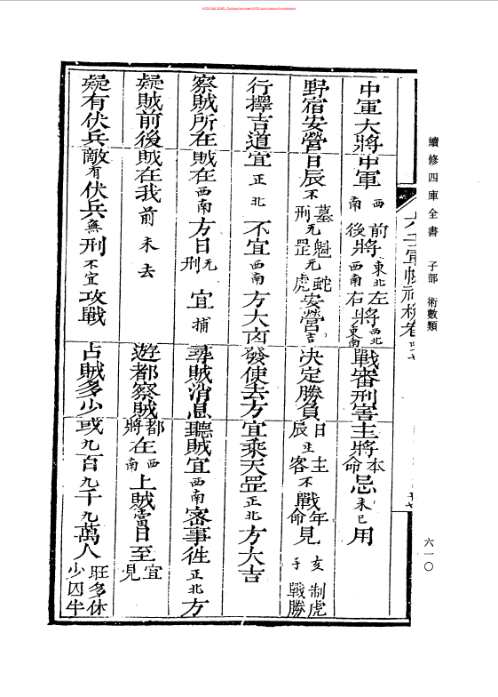 續修四庫全書 子部 術數類
六一〇
中軍大將中軍西南前將東北左將西北後將西南右將東南戰審刑害主將本命忌未巳用
野宿安營日辰不墓刑无魁罡无蛇虎安營吉決定勝負日辰主客不戰年命見亥子制虎戰勝
行擇吉道宜正北不宜西南方大凶發使去方宜乘天罡正北方大吉
察賊所在賊在西南方日刑无宜捕尋賊消息聽賊宜西南審事徃正北方
疑賊前後賊在我前未去遊都察賊都將在西南上賊當日至宜見
疑有伏兵敵有伏兵無刑不宜攻戰占賊多少或九百九千九萬人旺多休少囚半